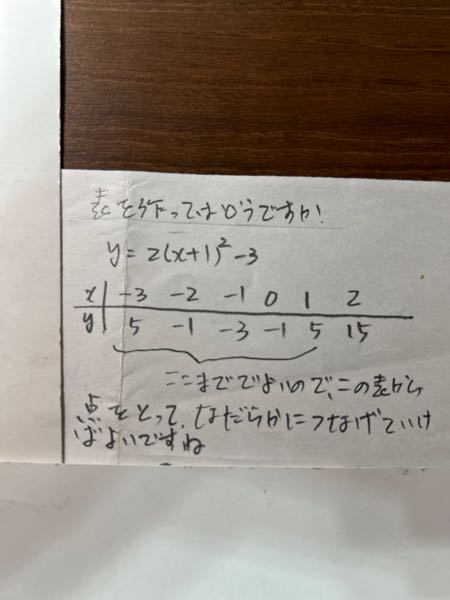 表を作ってはどうですか!
y = 2(x+1)² -3
x | -3 -2 -1 0 1 2
y | 5 -1 -3 -1 5 15
ここまででよいので、この表から
点をとって、なだらかにつなげていけ
ばよいですね